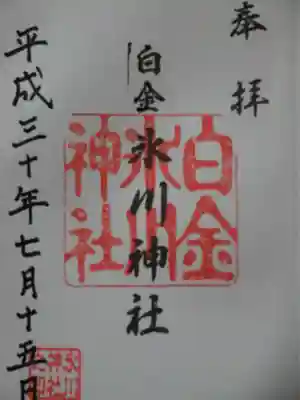 奉拝
白金氷川神社
白金氷川神社
平成三十年七月十五日